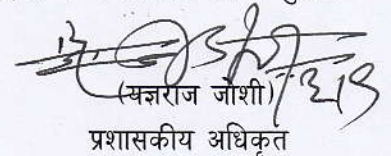 (यज्ञराज जोशी)
प्रशासकीय अधिकृत